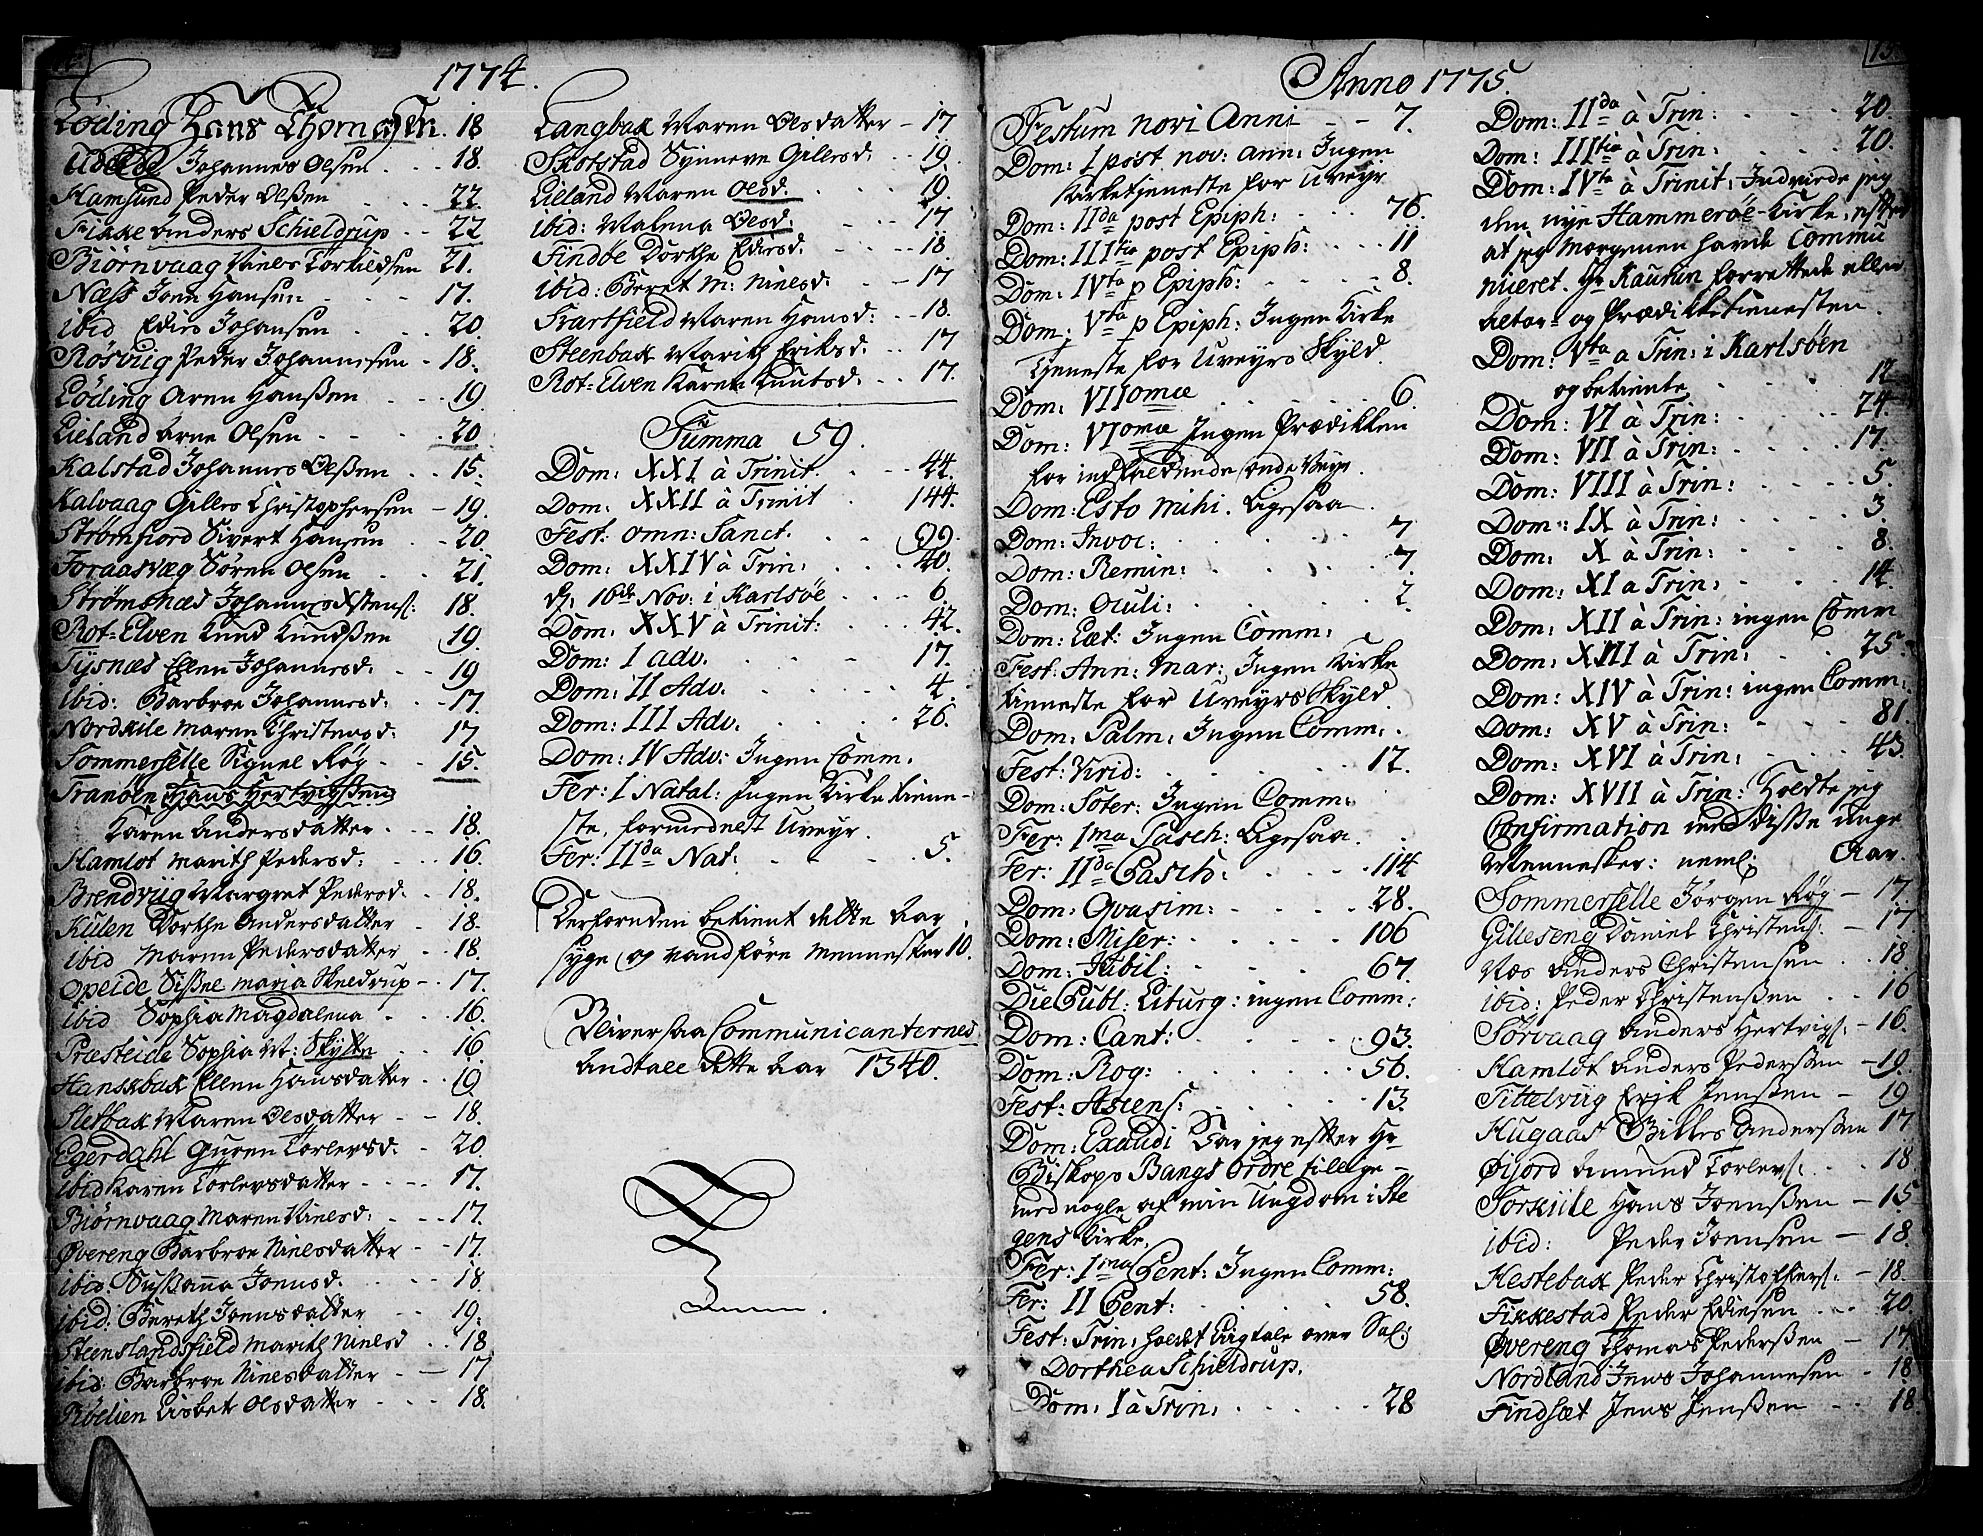 1774.
Løding Hans Thomasen. 18
Johannes Olsen . . . 18.
Hamsund Peder Olßen . . . 22.
Fikke Anders Schieldrup . . 22
Biørnvaag Niels Torkildsen 21.
Næss Joen Hansen . . . 17.
ibid Edis Johansen . . . 20.
Røsvug Peder Johannesen - 18.
Løding Aren Hanßen . . . 19
Lieland Arne Olsen . . . 20
Kalstad Johannes Olßen . . 15.
Kalvaag Gillers Christophersen - 19.
Strømfiord Sivert Hansen . . 20.
Foraasvæg Søren Olsen . . . 21.
Strømsnæs Johannes Xstens: 18.
Rot-Elven Knud Knudßen 19.
Tysnæs Ellen Johannesd. . . 19
ibid: Barbroe Johannesd. . . 17.
Nordkile Maren Christensd. 17
Sommerselle Signel Røg . . 15.
Tranøen Hans Hertvigßens
Karen Andersdatter . . . 18.
Hamlot Marith Pedersd: . . 16.
Brendviig Margret Pedersd. . . 18.
Kulen Dorthe Andersdatter . 18.
ibid Maren Pedersdatter . . 18.
Opeide Sißne Maria Skieldrup - . 17.
ibid Sophia Magdalena . . 16.
Præsteide Sophia M: Skytte . . 16
Hansbak Ellen Hansdatter . . 19.
Sletbak Maren Olsdatter . - 18.
Egerdahl Guren Torlevsd. . 20.
ibid Karen Torlevsdatter . . . 17.
Biørnvaag Maren Nielsd: . . . 17.
Øvereng Barbroe Nielsdatter . . 17.
ibid: Sußanna Joensd. . . . 18
ibid: Bereth Joensdatter . . 19.
Steenslandsfield Marith Nielsd . . 18
ibid: Barbroe Nielsdatter . — 17
Lisbet Olsdatter . . . 18.
Langbak Maren Olsdatter - 17
Skotstad Synneve Gillersd. . . 19.
Lieland Maren Olsd. . . . 19.
ibid: Malena Olsd . . . 17
Findøe Dorthe Edisd. . . . 18.
ibid: Beret M: Nielsd. . . 17
Svartfield Maren Hansd: . . 18.
Steenbak Marith Eriksd. . . 17
Rot-Elven Karen Knutsd. . . 17.
Summa 59.
Dom: XXI à Trinit. . . . 44.
Dom: XXII à Trinit . 144.
Fest: omn: Sanct. . . 99.
Dom: XXIV à Trin: . . . . 40.
d: 16de Nov: i Karlsøe . . . 6.
Dom: XXV à Trinit: . . . 42.
Dom: I adv. . . . 17.
Dom: II Adv. . . . 4.
Dom: III Adv. . . . 26.
Dom: IV Adv: Ingen Comm.
Fer: I Natal: Ingen Kirke tiene-
ste, formedelst Uveyr.
Fer: IIda Nat: . . . 5.
Derforuden betient dette Aar
syge og vandføre Mennesker 10.
Bliver saa Communicanternes
Andtall dette Aar 1340.
Anno 1775.
Festum novi Anni - - 7.
Dom: I post nov: ann: Ingen
Kirketjeneste for Uveyr
Dom: IIda post Epiph: . . . 76.
Dom: IIItia post Epiph: . . . 11
Dom: IVta p Epiph: . . . 8.
Dom: Vta p Epiph: Ingen Kirke
tjeneste for Uveyrs Skyld.
Dom: VIIomæ . . . 6.
Dom: VIomæ Ingen Prædikken
for indfaldende onde Veyr.
Dom: Esto mihi. Ligesaa.
Dom: Invoc: . . . 7
Dom: Remin: . . . 7.
Dom: Oculi: . . . 2.
Dom: Læt: Ingen Comm:
Fest: Ann: Mar: Ingen Kirke
tieneste for Uveyrs Skyld.
Dom: Palm: Ingen Comm: .
Fest: Virid: . . . 12.
Dom: Soter: Ingen Comm:
Fer: 1ma Pasch: Ligesaa.
Fer: IIda Pasch: . . . 114
Dom: Qvasim: . . . 28.
Dom: Miser: . . . 106
Dom: Jubil: . . . 67.
Die Publ: Liturg: ingen Comm:
Dom: Cant: . . . 93.
Dom: Rog: . . . 56.
Fest: Ascens: . . . 13.
Dom: Exaudi Var jeg efter Hr
Biskops Bangs Ordre tillige-
med nogle af min Ungdom i Ste
gens Kirke.
Fer: 1ma Pent: Ingen Comm:
Fer: II Pent: . . . 58.
Fest: Trin: holdt Liigtale over Sal:
Dorthea Schieldrup.
Dom: I à Trin: . . . 28
Dom: IIda à Trin: . . . 20.
Dom: IIItia à Trin: . . . 20.
Dom: IVta à Trinit: Indviede jeg
den nye Hammerøe-Kirke, efter
at jeg Morgenen havde Commu
niceret. Hr Kaurin forrettede eller
Altar- og Prædikketienesten.
Dom: Vta à Trin: i Karlsøen
og betiente . . . 12
Dom: VI à Trin: . . . 24.
Dom: VII à Trin: . . . 17.
Dom: VIII à Trin: . . . 5.
Dom: IX à Trin: . . . 3.
Dom: X à Trin: . . . 8.
Dom: XI à Trin: . . . 14.
Dom: XII à Trin: ingen Comm
Dom: XIII à Trin: . . . 25.
Dom: XIV à Trin: ingen Comm:
Dom: XV à Trin: . . . 81.
Dom: XVI à Trin: . . . 43.
Dom: XVII à Trin: Holdte jeg
Confirmation med disse unge
Mennesker: neml: Aar.
Sommerselle Jørgen Røg — 17.
Gilleseng Daniel Christens: — 17
Næs Anders Christensen . . 18
ibid: Peder Christenßen . . 16
Sørvaag Anders Hertvigs: — 16.
Hamlot Anders Pederßen — 19.
Tittelviig Erik Jenßen — 19
Hugaas Gilles Anderßen 17
Øifjord Amund Torlevs: . . . 18
Torkiile Hans Joenßen — 15
ibid: Peder Joensen — 18.
Hestebak Peder Christophers: — 18.
Fikkestad Peder Edisen . . . 20
Øvereng Thomas Pederßen — 17
Nordland Jens Johannesen . 18
Findsæt Jens Jenßen . . 18.